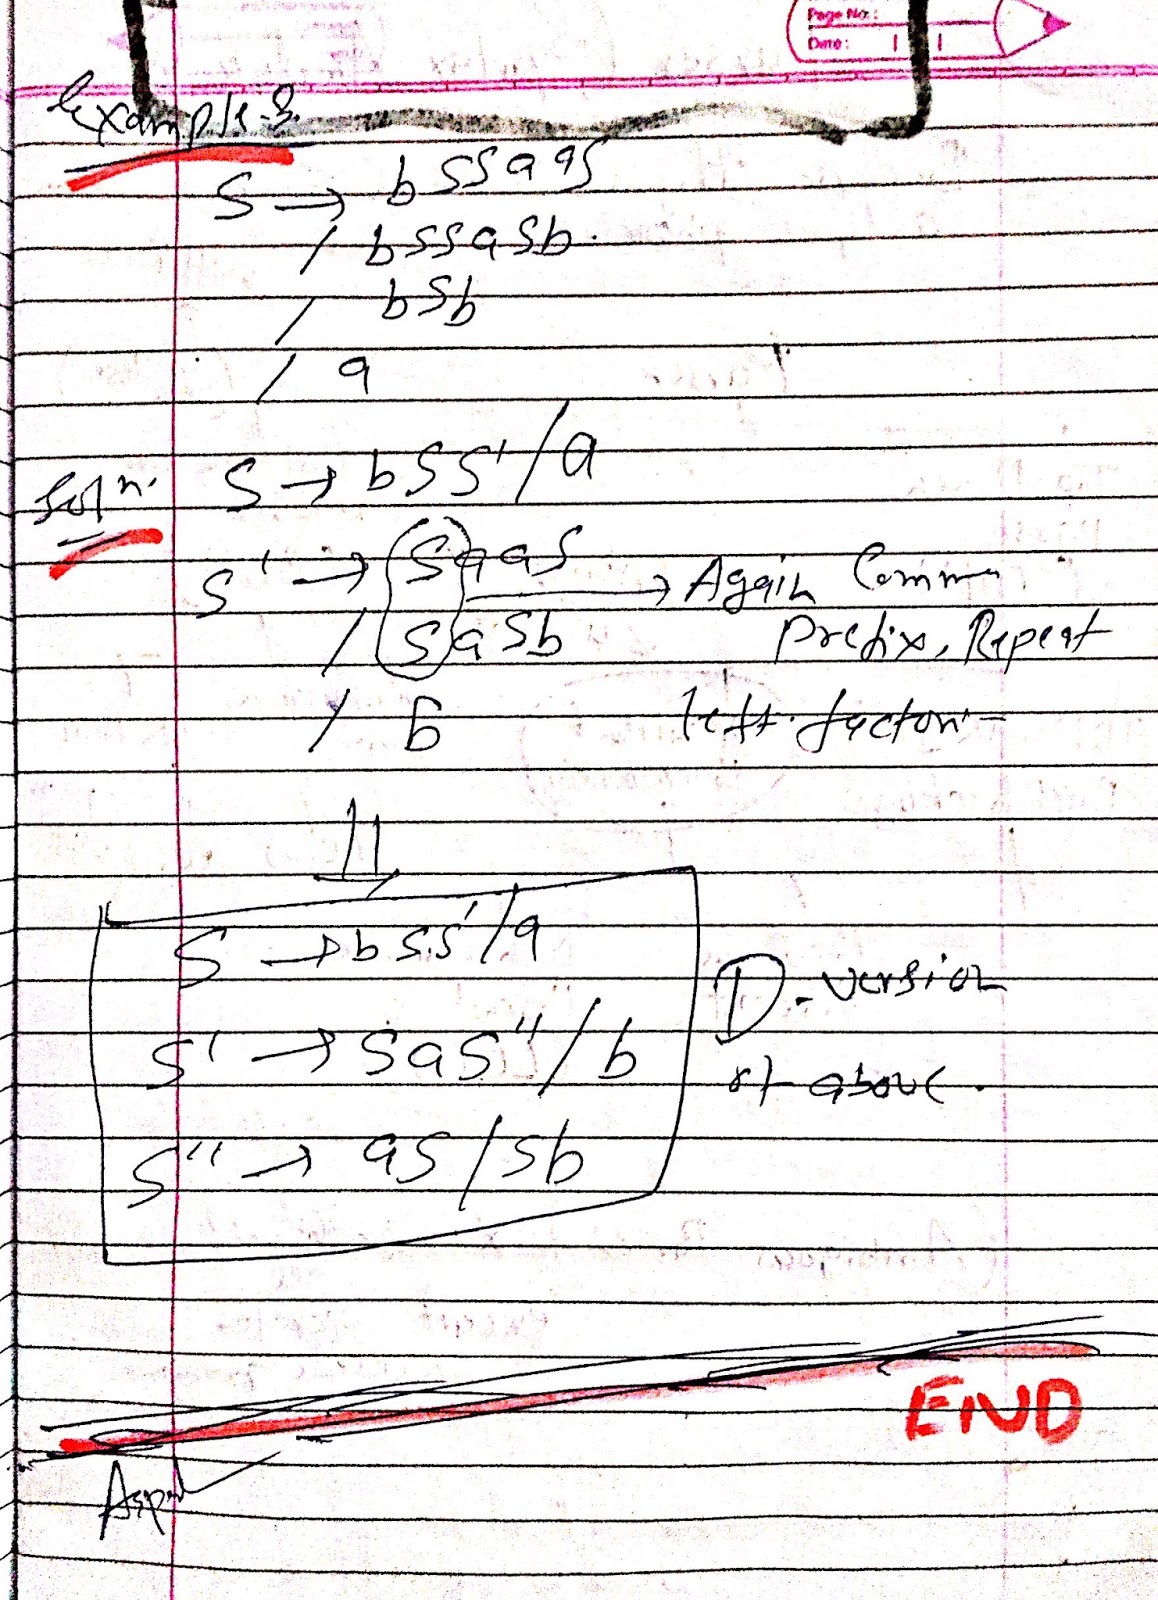 Page No.:
Date:
Example-3.
S → bSSaaS
/ bSSaSb.
/ bSb
/ a
Solⁿ. S → bSS'/a
S' → SaaS → Again Common
/ SaSb Prefix, Repeat
/ b left-factor
⇓
S → bSS'/a
S' → SaS''/b
S'' → aS/Sb
D-version
of above.
END